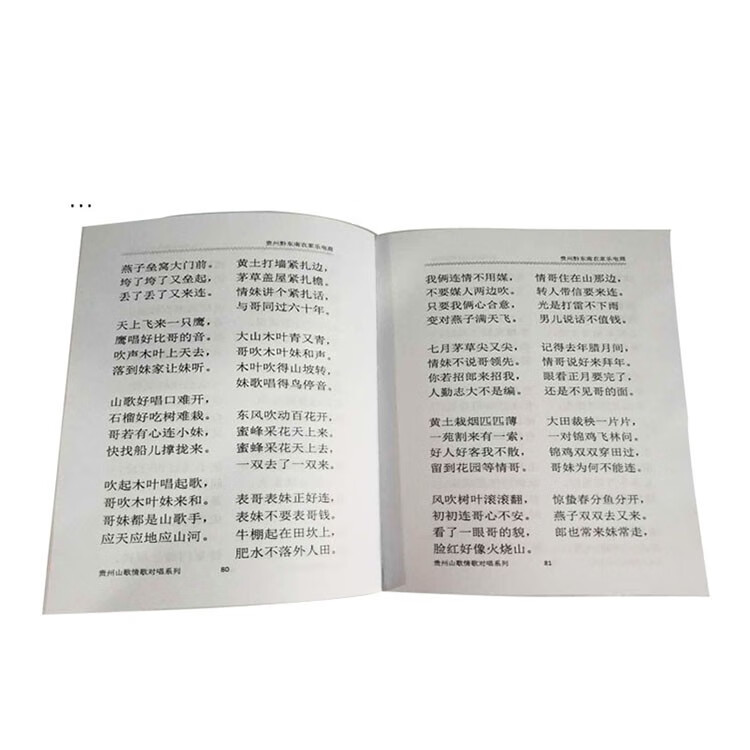 ...
贵州黔东南农家乐电商
燕子垒窝大门前。
垮了垮了又垒起，
丢了丢了又来连。
天上飞来一只鹰，
鹰唱好比哥的音。
吹声木叶上天去，
落到妹家让妹听。
山歌好唱口难开，
石榴好吃树难栽。
哥若有心连小妹，
快找船儿撑拢来。
吹起木叶唱起歌，
哥吹木叶妹来和。
哥妹都是山歌手，
应天应地应山河。
黄土打墙紧扎边，
茅草盖屋紧扎檐。
情妹讲个紧扎话，
与哥同过六十年。
大山木叶青又青，
哥吹木叶妹和声。
木叶吹得山坡转，
妹歌唱得鸟停音。
东风吹动百花开，
蜜蜂采花天上来。
蜜蜂采花天上去，
一双去了一双来。
表哥表妹正好连，
表妹不要表哥钱。
牛棚起在田坎上，
肥水不落外人田。
贵州山歌情歌对唱系列
80
贵州黔东南农家乐电商
我俩连情不用媒，
不要媒人两边吹。
只要我俩心合意，
变对燕子满天飞。
七月茅草尖又尖，
情妹不说哥领先。
你若招郎来招我，
人勤志大不是编。
黄土栽烟匹匹薄
一苑割来有一索，
好人好客我不散，
留到花园等情哥。
风吹树叶滚滚翻，
初初连哥心不安。
看了一眼哥的貌，
脸红好像火烧山。
情哥住在山那边，
转人带信要来连。
光是打雷不下雨
男儿说话不值钱。
记得去年腊月间，
情哥说好来拜年。
眼看正月要完了，
还是不见哥的面。
大田栽秧一片片，
一对锦鸡飞林间。
锦鸡双双穿田过，
哥妹为何不能连。
惊蛰春分鱼分开，
燕子双双去又来。
郎也常来妹常走，
贵州山歌情歌对唱系列
81